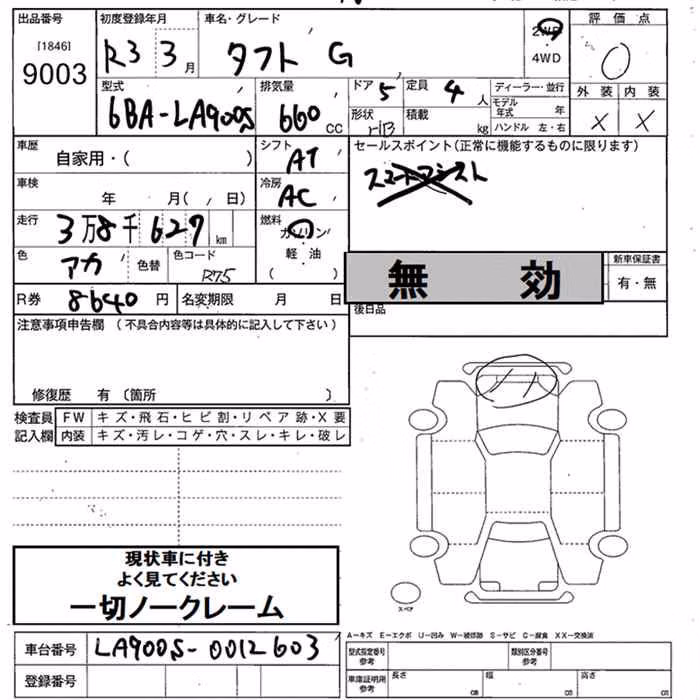 出品番号 初度登録年月 車名・グレード 2WD 評価点
[1846] R3 3月 タフト G 4WD 0
9003
型式 排気量 ドア 5 定員 4人 ディーラー・並行 外装 内装
6BA-LA900S 660 CC 形状 積載 kg モデル年式 年 × ×
ハンドル 左・右
車歴 自家用・( ) シフト AT セールスポイント(正常に機能するものに限ります)
車検 年 月( 、 日) 冷房 AC
走行 3万8千627km 燃料 ガソリン
軽油
( )
色 アカ 色替 色コード R75 無効 新車保証書
有・無
R券 8640円 名変期限 月 日 後日品
注意事項申告欄 (不具合内容等は具体的に記入して下さい)
修復歴 有〔箇所 〕
検査員 FW キズ・飛石・ヒビ割・リペア跡・X要
記入欄 内装 キズ・汚レ・コゲ・穴・スレ・キレ・破レ
現状車に付き
よく見てください
一切ノークレーム
スペア
車台番号 LA900S-0012603
登録番号
A-キズ E-エクボ U-凹み W-補修跡 S-サビ C-腐食 XX-交換済
型式指定番号 参考 類別区分番号 参考
車庫証明用 参考 長さ cm 幅 cm 高さ cm